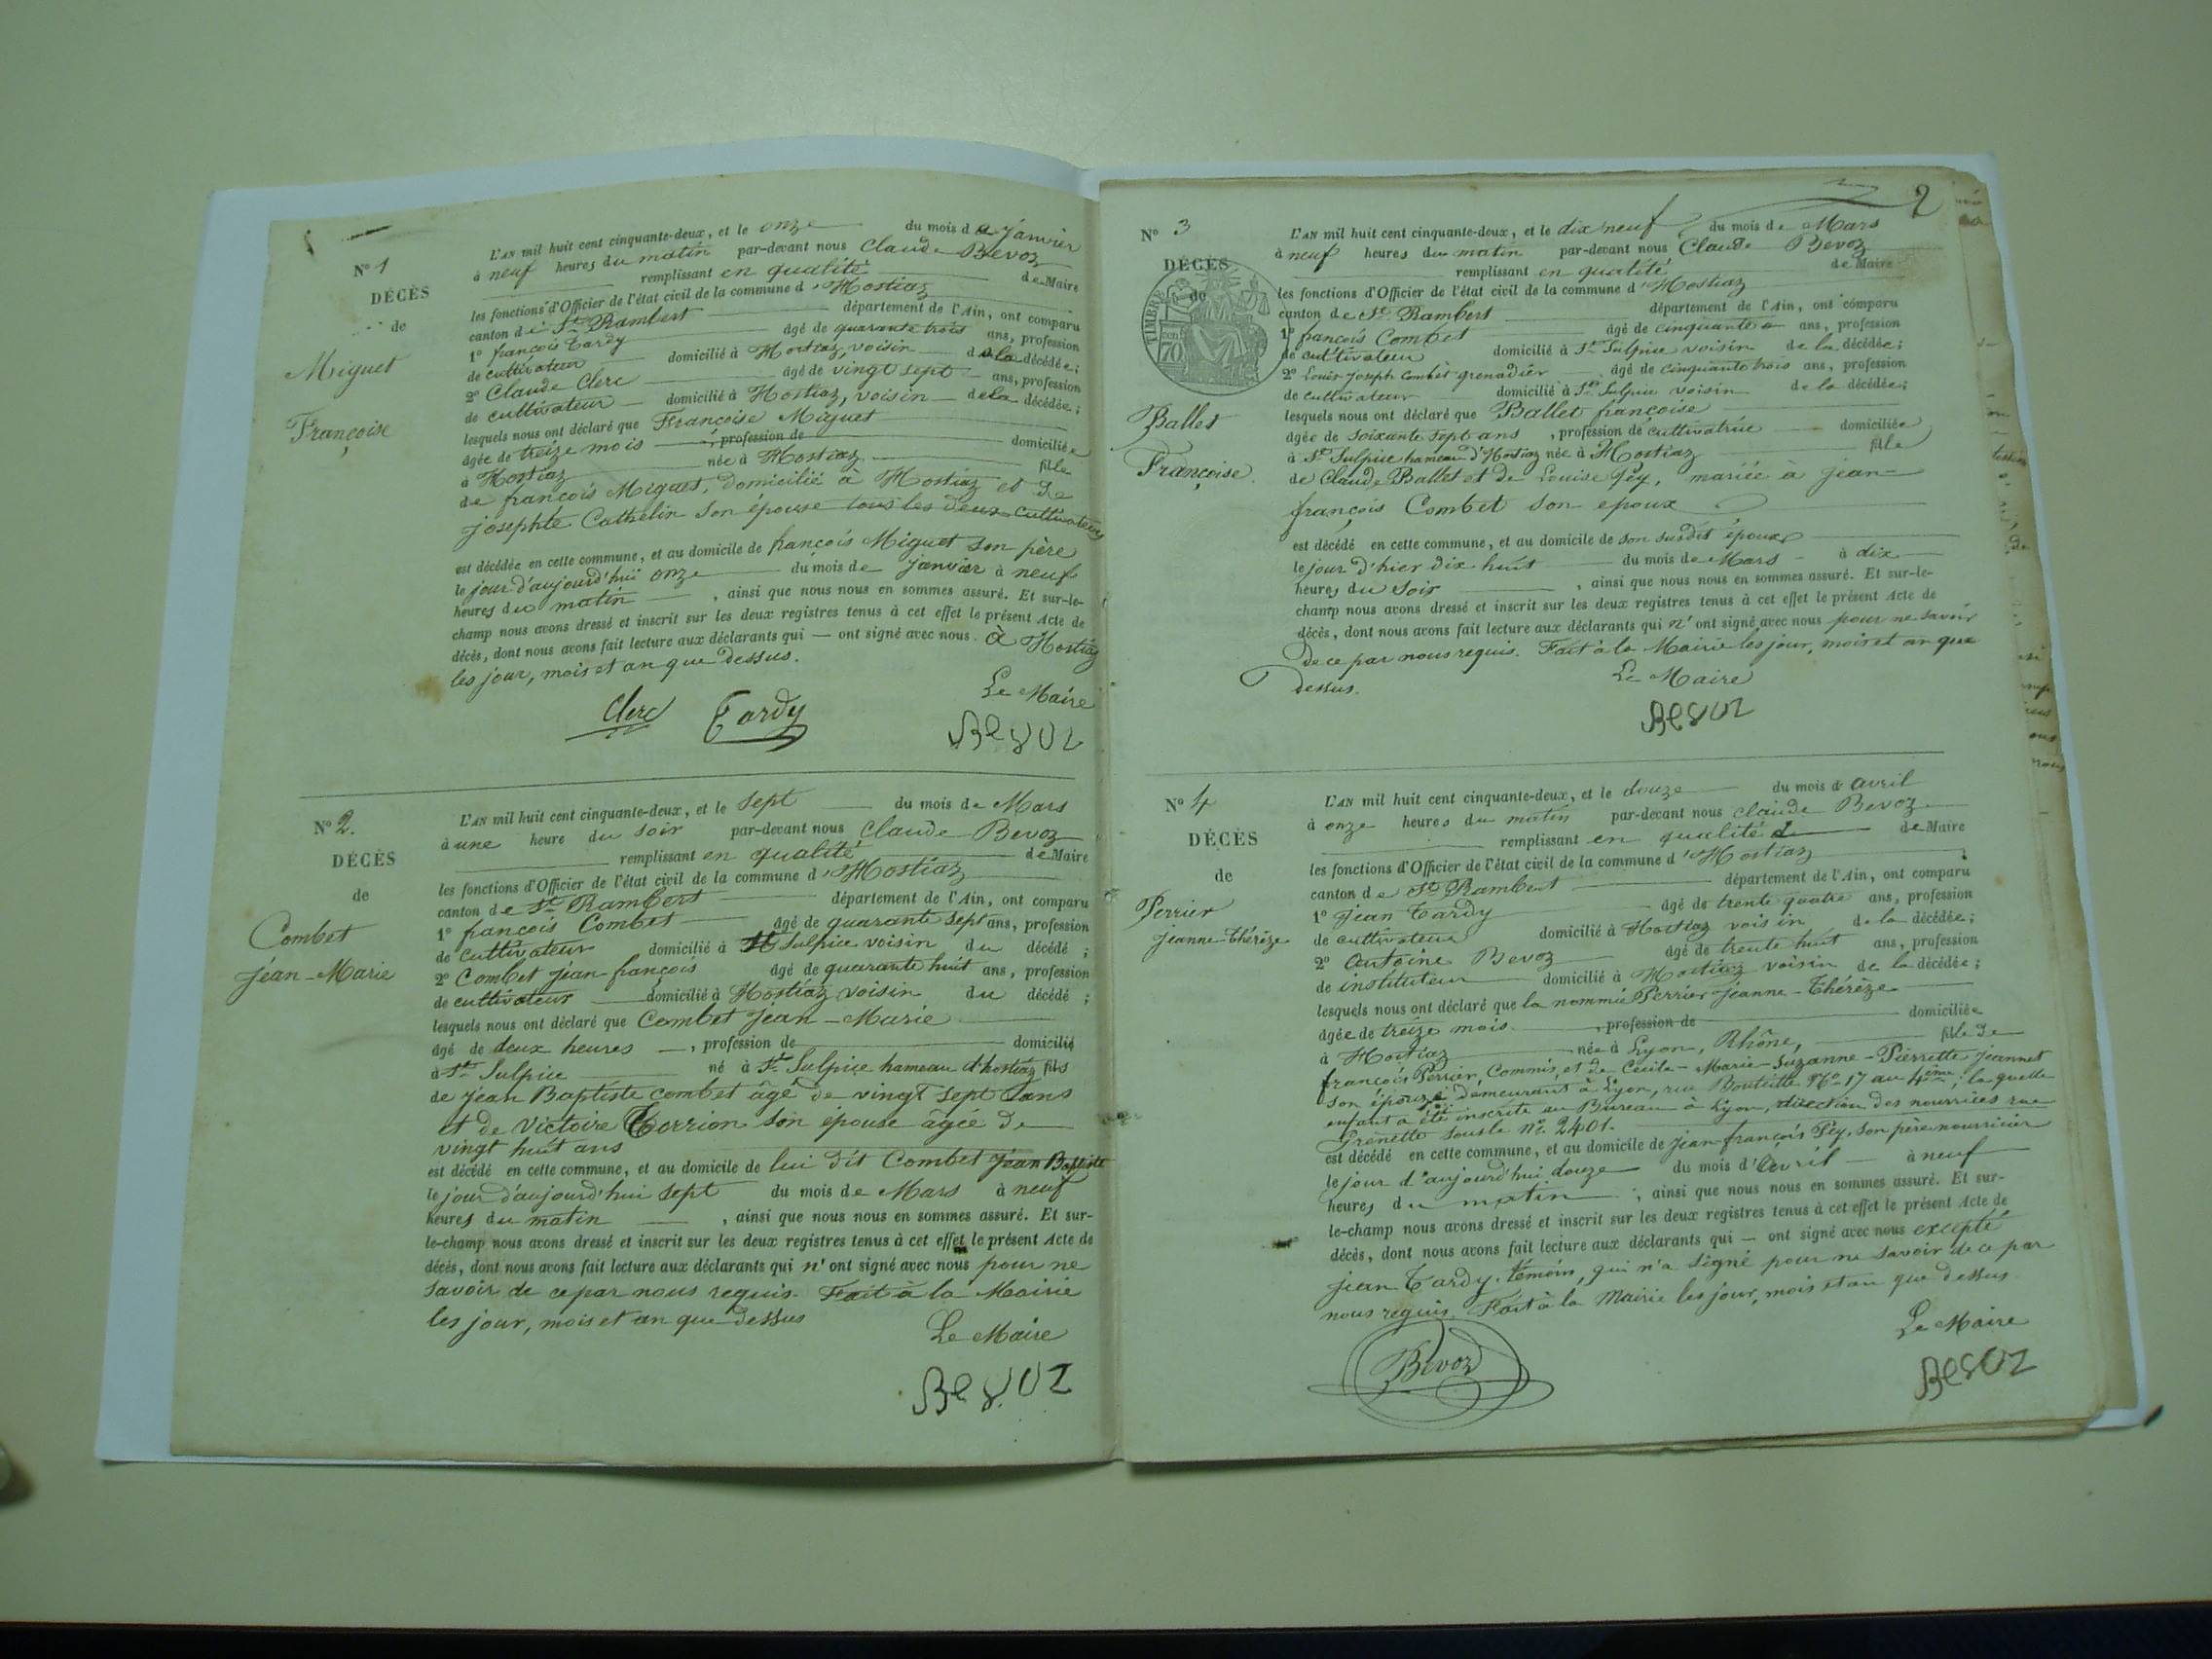 N° 1
DÉCÈS
de
Miguet
Françoise
L'AN mil huit cent cinquante-deux, et le onze du mois de janvier
à neuf heures du matin par-devant nous Claude Bevoz
remplissant en qualité de Maire
les fonctions d'Officier de l'état civil de la commune d'Hostiaz
canton de St Rambert département de l'Ain, ont comparu
1° françois Tardy âgé de quarante trois ans, profession
de cultivateur domicilié à Hostiaz, voisin de la décédée;
2° Claude Clerc âgé de vingt sept ans, profession
de cultivateur domicilié à Hostiaz, voisin de la décédée;
lesquels nous ont déclaré que Françoise Miguet
âgée de treize mois, profession de domiciliée
à Hostiaz née à Hostiaz fille
de françois Miguet, domicilié à Hostiaz et de
josephte Cathelin son épouse tous les deux cultivateurs
est décédée en cette commune, et au domicile de françois Miguet son père
le jour d'aujourd'hui onze du mois de janvier à neuf
heures du matin, ainsi que nous nous en sommes assuré. Et sur-le-
champ nous avons dressé et inscrit sur les deux registres tenus à cet effet le présent Acte de
décès, dont nous avons fait lecture aux déclarants qui — ont signé avec nous. à Hostiaz
les jour, mois et an que dessus.
Le Maire
Clerc Tardy Bevoz
N° 2.
DÉCÈS
de
Combet
Jéan-Marie
L'AN mil huit cent cinquante-deux, et le sept du mois de Mars
à une heure du soir par-devant nous Claude Bevoz
remplissant en qualité de Maire
les fonctions d'Officier de l'état civil de la commune d'Hostiaz
canton de St Rambert département de l'Ain, ont comparu
1° françois Combet âgé de quarante sept ans, profession
de cultivateur domicilié à St Sulpice voisin du décédé;
2° Combet jean françois âgé de quarante huit ans, profession
de cultivateur domicilié à Hostiaz voisin du décédé;
lesquels nous ont déclaré que Combet Jean-Marie
âgé de deux heures, profession de domicilié
à St Sulpice né à St Sulpice hameau d'hostiaz fils
de jean Baptiste combet âgé de vingt sept ans
et de Victoire Torrion son épouse âgée de
vingt huit ans
est décédé en cette commune, et au domicile de lui dit Combet Jean Baptiste
le jour d'aujourd'hui sept du mois de Mars à neuf
heures du matin, ainsi que nous nous en sommes assuré. Et sur-
le-champ nous avons dressé et inscrit sur les deux registres tenus à cet effet le présent Acte de
décès, dont nous avons fait lecture aux déclarants qui n'ont signé avec nous pour ne
savoir de ce par nous requis. Fait à la Mairie
les jour, mois et an que dessus
Le Maire
Bevoz
2
N° 3
DÉCÈS
de
TIMBRE
70
Ballet
Françoise.
L'AN mil huit cent cinquante-deux, et le dix neuf du mois de Mars
à neuf heures du matin par-devant nous Claude Bevoz
remplissant en qualité de Maire
les fonctions d'Officier de l'état civil de la commune d'Hostiaz
canton de St Rambert département de l'Ain, ont comparu
1° françois Combet âgé de cinquante ans, profession
de cultivateur domicilié à St Sulpice voisin de la décédée;
2° Louis joseph combet grenadier âgé de cinquante trois ans, profession
de cultivateur domicilié à St Sulpice voisin de la décédée;
lesquels nous ont déclaré que Ballet françoise
âgée de soixante sept ans, profession de cultivatrice domiciliée
à St Sulpice hameau d'Hostiaz née à Hostiaz fille
de Claude Ballet et de Louise Pey, mariée à jean-
françois Combet son epoux
est décédé en cette commune, et au domicile de son susdit époux
le jour d'hier dix huit du mois de Mars à dix
heures du soir, ainsi que nous nous en sommes assuré. Et sur-le-
champ nous avons dressé et inscrit sur les deux registres tenus à cet effet le présent Acte de
décès, dont nous avons fait lecture aux déclarants qui n'ont signé avec nous pour ne savoir
de ce par nous requis. Fait à la Mairie les jour, mois et an que
dessus.
Le Maire
Bevoz
N° 4
DÉCÈS
de
Perrier
jeanne-thérèze
L'AN mil huit cent cinquante-deux, et le douze du mois d'avril
à onze heures du matin par-devant nous claude Bevoz
remplissant en qualité de Maire
les fonctions d'Officier de l'état civil de la commune d'Hostiaz
canton de St Rambert département de l'Ain, ont comparu
1° Jean Tardy âgé de trente quatre ans, profession
de cultivateur domicilié à Hostiaz voisin de la décédée;
2° Antoine Bevoz âgé de trente huit ans, profession
de instituteur domicilié à Hostiaz voisin de la décédée;
lesquels nous ont déclaré que la nommée Perrier jeanne-thérèze
âgée de treize mois, profession de domiciliée
à Hostiaz née à Lyon, Rhône, fille de
françois Perrier, Commis, et de Cécile-Marie-Suzanne-Pierrette jeannet
son épouze demeurant à Lyon, rue Bouteille N° 17 au 4ème; la quelle
enfant a été inscrite au Bureau à Lyon, direction des nourrices rue
Grenette sous le N° 2401.
est décédé en cette commune, et au domicile de jean-françois Pey, son père nourricier
le jour d'aujourd'hui douze du mois d'avril à neuf
heures du matin, ainsi que nous nous en sommes assuré. Et sur-
le-champ nous avons dressé et inscrit sur les deux registres tenus à cet effet le présent Acte de
décès, dont nous avons fait lecture aux déclarants qui — ont signé avec nous excepté
jean Tardy, témoin, qui n'a signé pour ne savoir de ce par
nous requis. Fait à la Mairie les jour, mois et an que dessus.
Le Maire
Bevoz Bevoz